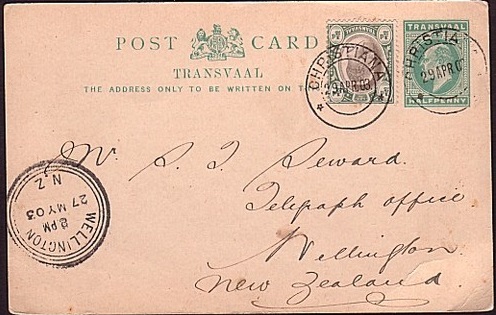 POST CARD
TRANSVAAL
THE ADDRESS ONLY TO BE WRITTEN ON T
TRANSVAAL
CHRISTIANA
29 APR 03
TRANSVAAL
HALFPENNY
CHRISTIA
29 APR 0
Mr. S. T. Seward.
Telegraph office
Wellington.
New Zealand.
WELLINGTON N.Z.
27 MY 03
PM